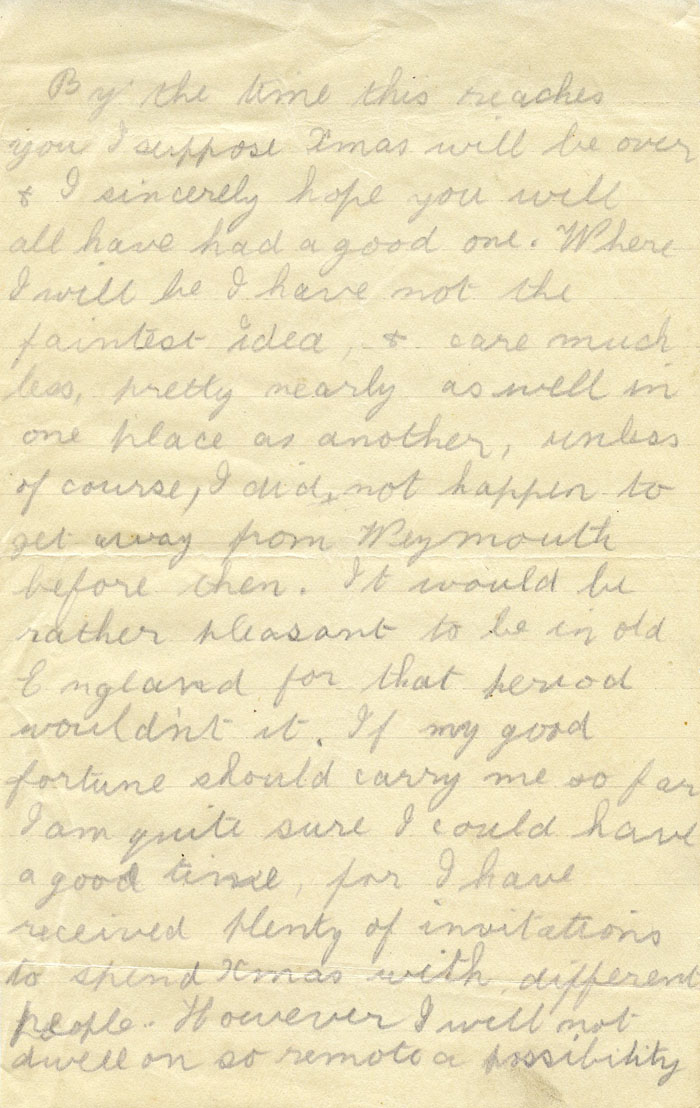 By the time this reaches
you I suppose Xmas will be over
& I sincerely hope you will
all have had a good one. Where
I will be I have not the
faintest idea, & care much
less, pretty nearly as well in
one place as another, unless
of course, I did, not happen to
get away from Weymouth
before then. It would be
rather pleasant to be in old
England for that period
wouldn't it. If my good
fortune should carry me so far
I am quite sure I could have
a good time, for I have
received plenty of invitations
to spend Xmas with different
people. However I will not
dwell on so remote a possibility